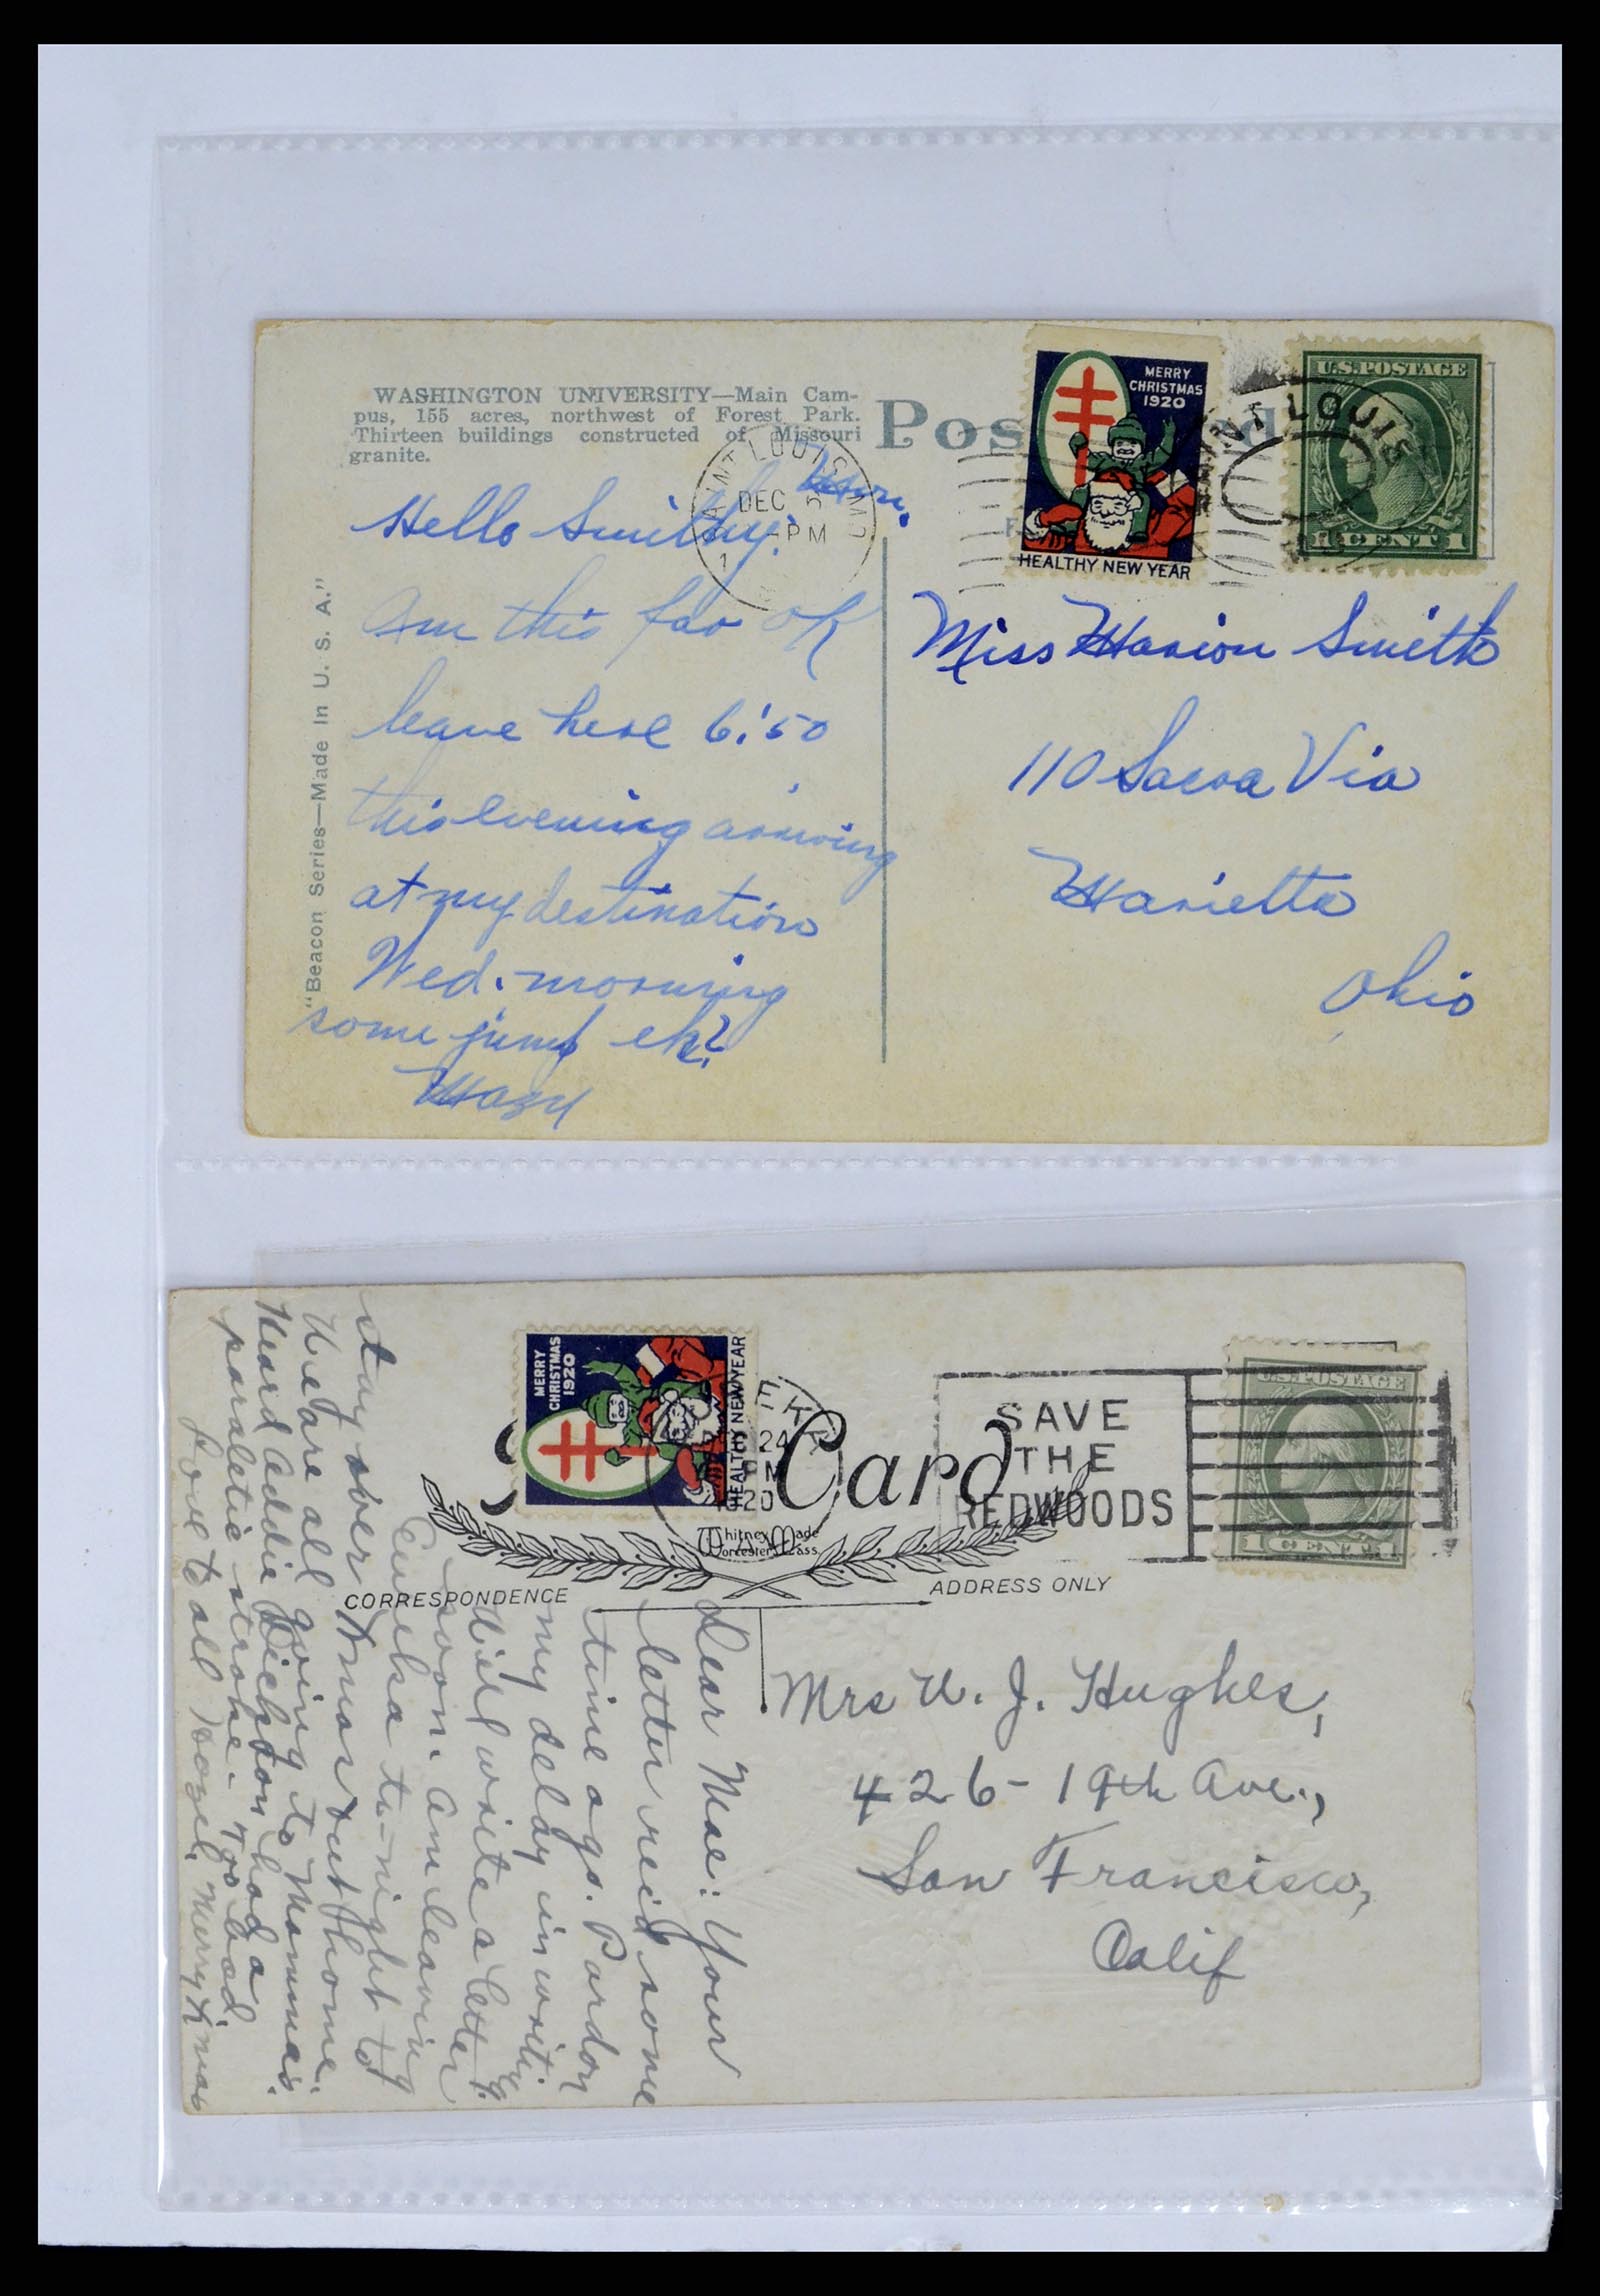 WASHINGTON UNIVERSITY—Main Cam-
pus, 155 acres, northwest of Forest Park.
Thirteen buildings constructed of Missouri
granite.
"Beacon Series—Made In U. S. A."
Pos d
SAINT LOUIS, MO
DEC 5
PM
1
MERRY
CHRISTMAS
1920
HEALTHY NEW YEAR
SAINT LOUIS
U.S. POSTAGE
1 CENT 1
Mon.
Hello Smithy.
Am this far OK
leave here 6:50
this evening arriving
at my destination
Wed. morning
some jump eh?
Mary
Miss Marion Smith
110 Sacra Via
Marietta
Ohio
MERRY
CHRISTMAS
1920
HEALTHY NEW YEAR
EK
24
PM
1920
Card
SAVE
THE
REDWOODS
U.S. POSTAGE
1 CENT 1
Whitney Made
Worcester, Mass.
CORRESPONDENCE
ADDRESS ONLY
Dear Mae: Your
letter rec'd some
time ago. Pardon
my delay in writing.
Will write a letter
soon. Am leaving
Eureka to-night to
stay over Xmas at home.
We are all going to Mamma's.
Heard Addie Dickson had a
paraletic stroke. Too bad.
Love to all Hazel. Merry Xmas
Mrs W. J. Hughes,
426-19th Ave.,
San Francisco,
Calif